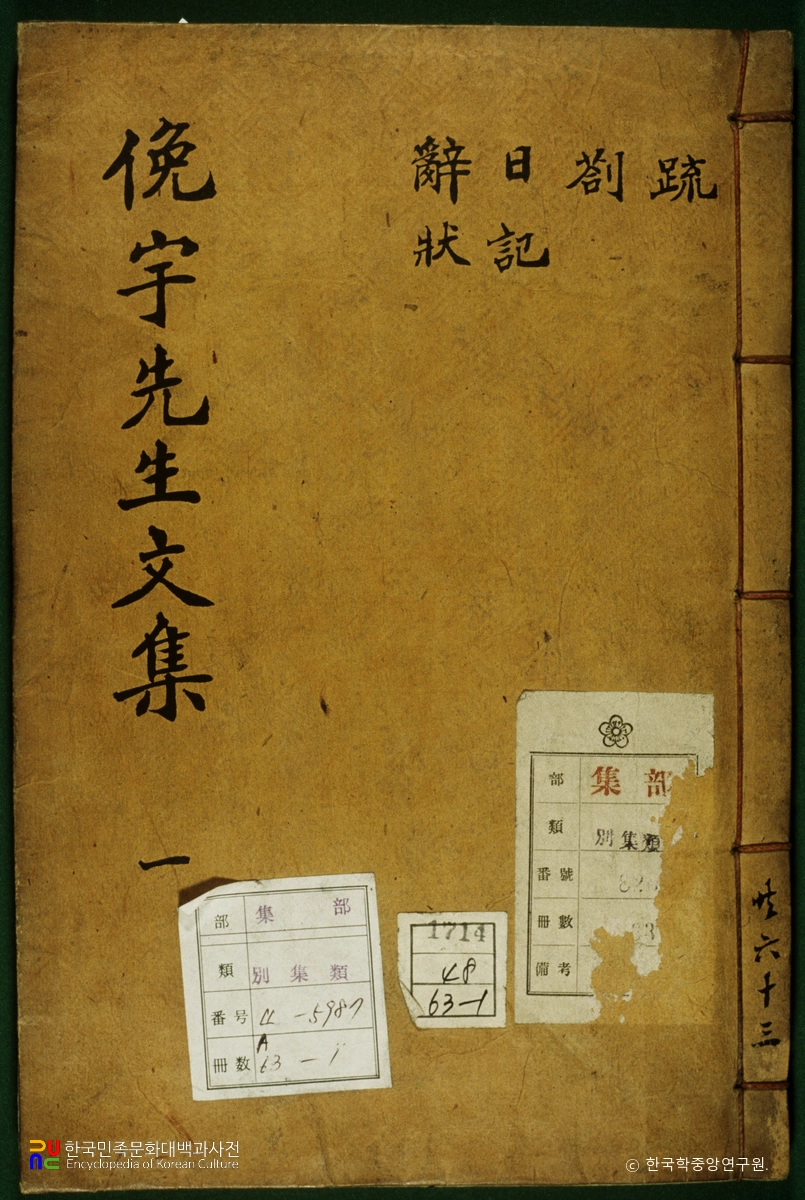 俛宇先生文集 一
疏
劄
日記
辭狀
共六十三
部 集部
類 別集類
番號
冊數
備考
部 集部
類 別集類
番号
冊数 63-1
1714
48
63-1
한국민족문화대백과사전
Encyclopedia of Korean Culture
© 한국학중앙연구원.